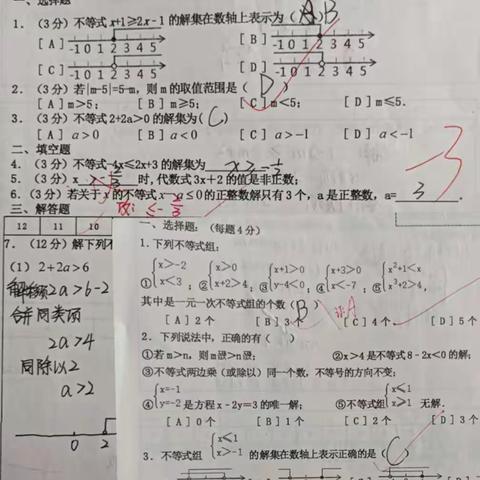 一、选择题
1. (3分) 不等式 x+1≥2x-1 的解集在数轴上表示为 (A)B
[A] -1 0 1 2 3 4 5 [B] -1 0 1 2 3 4 5
[C] -1 0 1 2 3 4 5 [D] -1 0 1 2 3 4 5
2. (3分) 若|m-5|=5-m, 则 m 的取值范围是 ( D )
[A] m>5; [B] m≥5; [C] m<5; [D] m≤5.
3. (3分) 不等式 2+2a>0 的解集为 ( C )
[A] a>0 [B] a<0 [C] a>-1 [D] a<-1
二、填空题
4. (3分) 不等式-4x≤2x+3 的解集为 x>-
5. (3分) x 时, 代数式 3x+2 的值是非正数;
6. (3分) 若关于 x 的不等式 x-a≤0 的正整数解只有 3 个, a 是正整数, a= 3 .
三、解答题
12 11 10
7. (12分) 解下列不
(1) 2+2a>6
2a>6-2
合并同类项
2a>4
同除以2
a>2
0 2
一、选择题: (每题4分)
1. 下列不等式组:
① x>-2 x<3 ; ② x>0 x+2>4 ; ③ x+1>0 y-4<0 ; ④ x+3>0 x<-7 ; ⑤ x²+1<x x²+2>4,
其中是一元一次不等式组的个数 ( B ) A
[A] 2个 [B] 3个 [C] 4个 [D] 5个
2. 下列说法中, 正确的有 ( )
①若 m>n, 则 m >n ; ②x>4 是不等式 8-2x<0 的解;
③不等式两边乘 (或除以) 同一个数, 不等号的方向不变;
④ x=-1 y=-2 是方程 x-2y=3 的唯一解; ⑤不等式组 x≤1 x≥1 无解.
[A] 0个 [B] 1个 [C] 2个 [D] 3个
3. 不等式组 x≤1 x>-1 的解集在数轴上表示正确的是 ( C )